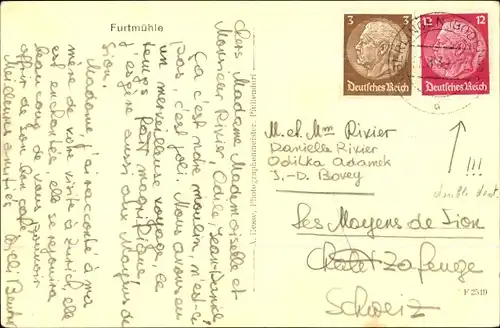 Furtmühle
Chers Madame, Mademoiselle et
Monsieur Rivier, Odile, Jean-Daniel,
Ça c'est notre moulin, n'est-ce
pas, c'est joli. Nous avons eu
un merveilleuse voyage, le
temps magnifique!
J'espère aussi aux Mayens de
Sion.
Madame, j'ai raconté à ma
mère de votre visite à Zurich, elle
est enchantée, elle se réjouira
beaucoup de vous pouvoir
offrir de son bon café
Meilleures amitiés
3
3
Deutsches Reich
12
12
Deutsches Reich
M. et Mm Rivier
Daniella Rivier
Odilka Adamek
J.-D. Bovey
!!!
Les Mayens de Sion
Chalet
Schweiz
F 2519